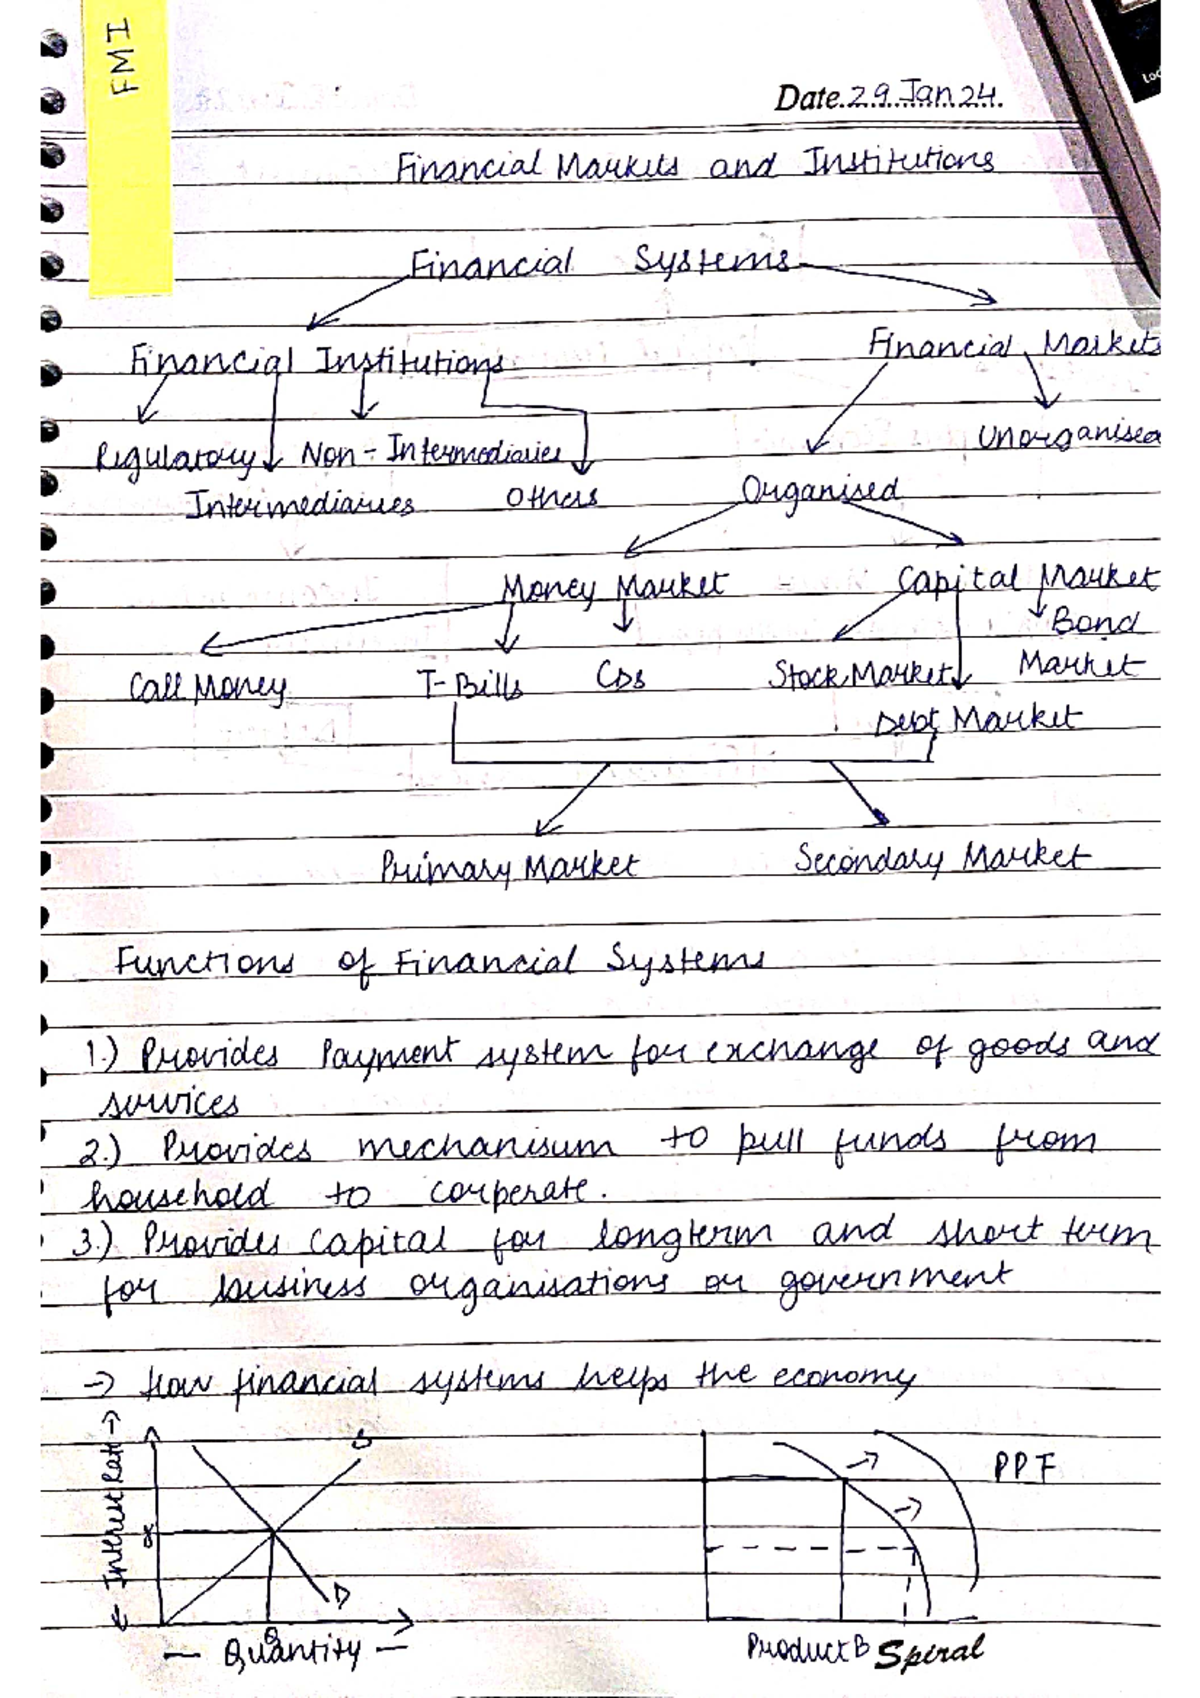 FMI
Date.29.Jan.24.
Financial Markets and Institutions
Financial Systems
Financial Institutions Financial Markets
Regulatory Non-Intermediaries Unorganised
Intermediaries Others Organised
Money Market Capital Market
Bond
Call Money T-Bills CDs Stock Market Market
Debt Market
Primary Market Secondary Market
Functions of Financial Systems
1.) Provides Payment system for exchange of goods and
services
2.) Provides mechanisum to pull funds from
household to corperate.
3.) Provides Capital for longterm and short term
for business organisations or government
→ How financial systems helps the economy
← Interest Rate →
S
D
Q
— Quantity —
PPF
Product B
Spiral